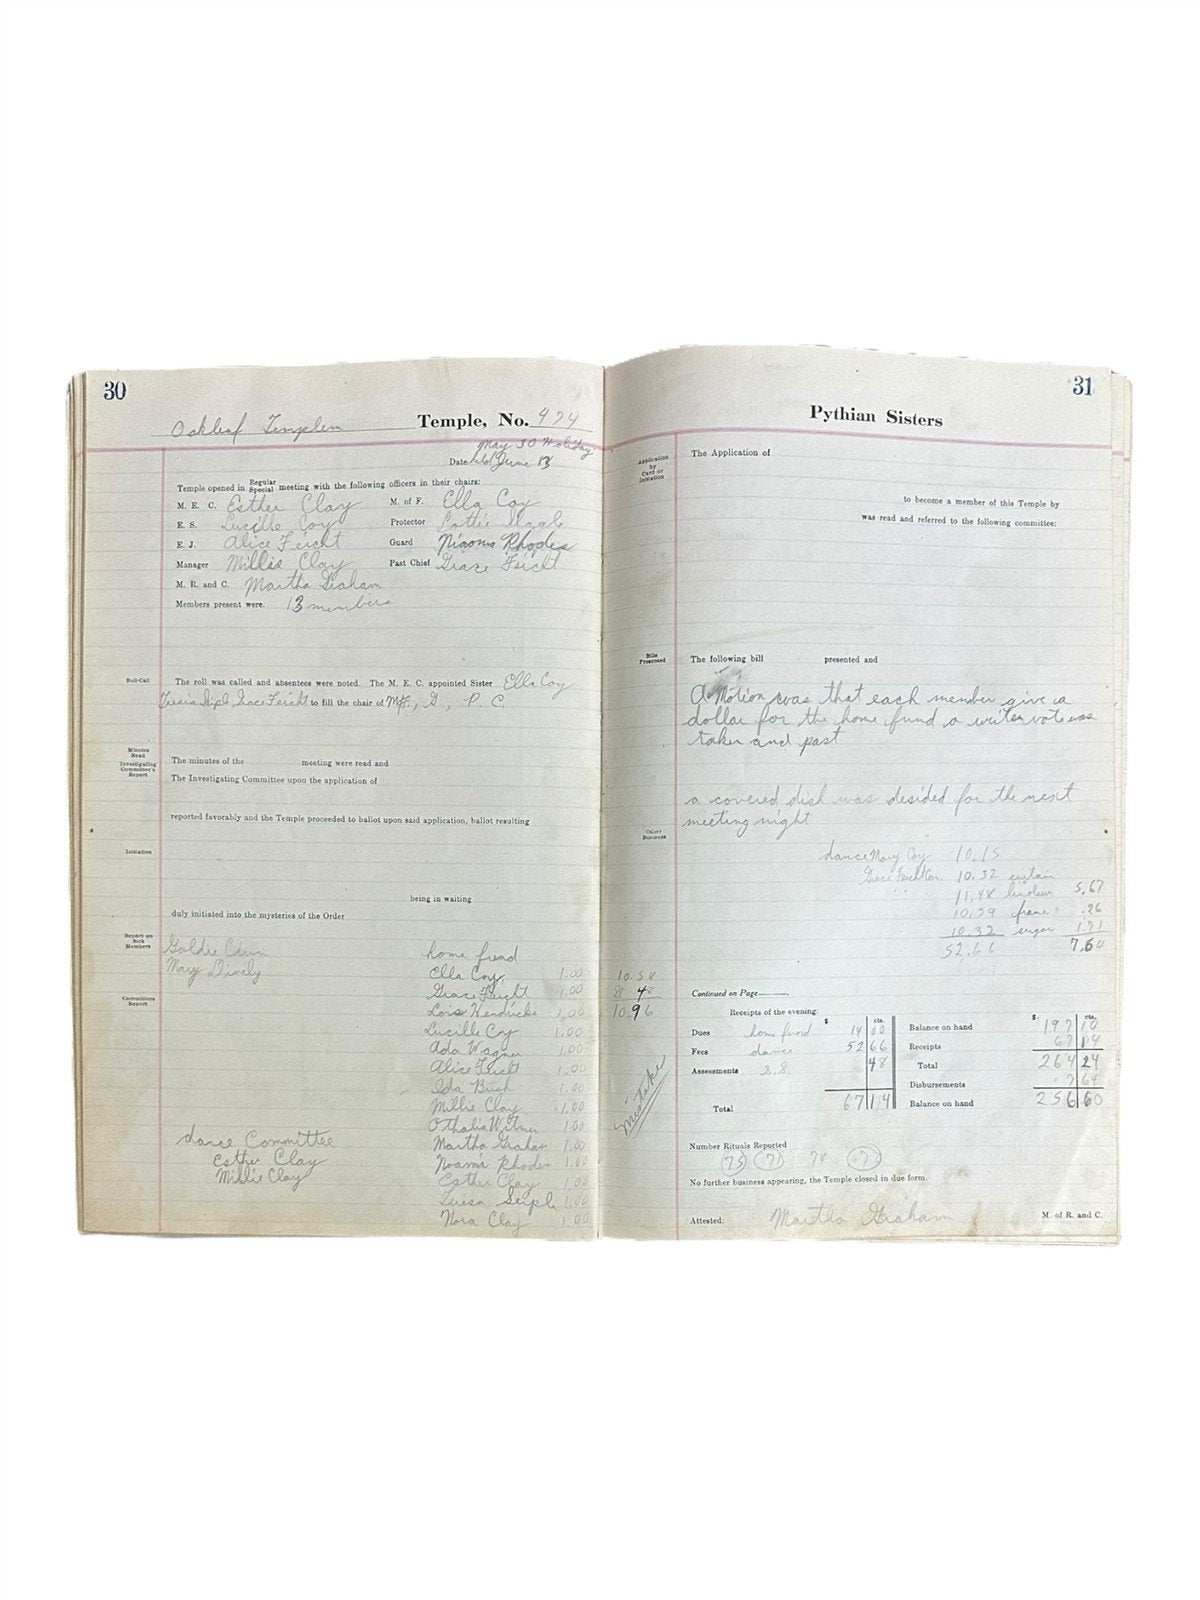 30
Oakleaf Templem Temple, No. 474
May 30 Holiday
Date held June 13
Temple opened in Regular Special meeting with the following officers in their chairs:
M. E. C. Esther Clay M. of F. Ella Coy
E. S. Lucille Coy Protector
E. J. Alice Feicht Guard Rhodes
Manager Millie Clay Past Chief Grace Feicht
M. R. and C. Martha Graham
Members present were. 13 members
Roll-Call
The roll was called and absentees were noted. The M. E. C. appointed Sister Ella Coy
Grace Feicht to fill the chair of M.F., G, P. C.
Minutes Read
Investigating Committee's Report
The minutes of the meeting were read and
The Investigating Committee upon the application of
reported favorably and the Temple proceeded to ballot upon said application, ballot resulting
Initiation
being in waiting
duly initiated into the mysteries of the Order
Report on Sick Members
Goldie
Mary Dively
Committees Report
home fund
Ella Coy 1.00
Grace Feicht 1.00
Lois Hendricks 1.00
Lucille Coy 1.00
Ada Wagner 1.00
Alice Feicht 1.00
Ida Bush 1.00
Millie Clay 1.00
Othalia Witmer 1.00
dance Committee
Martha Graham 1.00
Esther Clay
Rhodes 1.00
Millie Clay
Esther Clay 1.00
Teresa Seiple 1.00
Nora Clay 1.00
31
Pythian Sisters
Application by Card or Initiation
The Application of
to become a member of this Temple by
was read and referred to the following committee:
Bills Presented
The following bill presented and
A Motion was that each member give a
dollar for the home fund a writen vote was
taken and past
a covered dish was desided for the next
meeting night
Other Business
dance Mary Coy 10.15
Grace Feicht 10.32 curtain
11.48 linoleum 5.67
10.39 frame .26
10.32 sugar 1.71
52.66 7.64
10.58
10.96
mistake
Continued on Page
Receipts of the evening:
$ cts. $ cts.
Dues home fund 14 00 Balance on hand 197 10
Fees dance 52 66 Receipts 67 14
Assessments 8.8 48 Total 264 24
Disbursements 7 64
Total 67 14 Balance on hand 256 60
Number Rituals Reported
75 71 74 7
No further business appearing, the Temple closed in due form.
Attested: Martha Graham M. of R. and C.